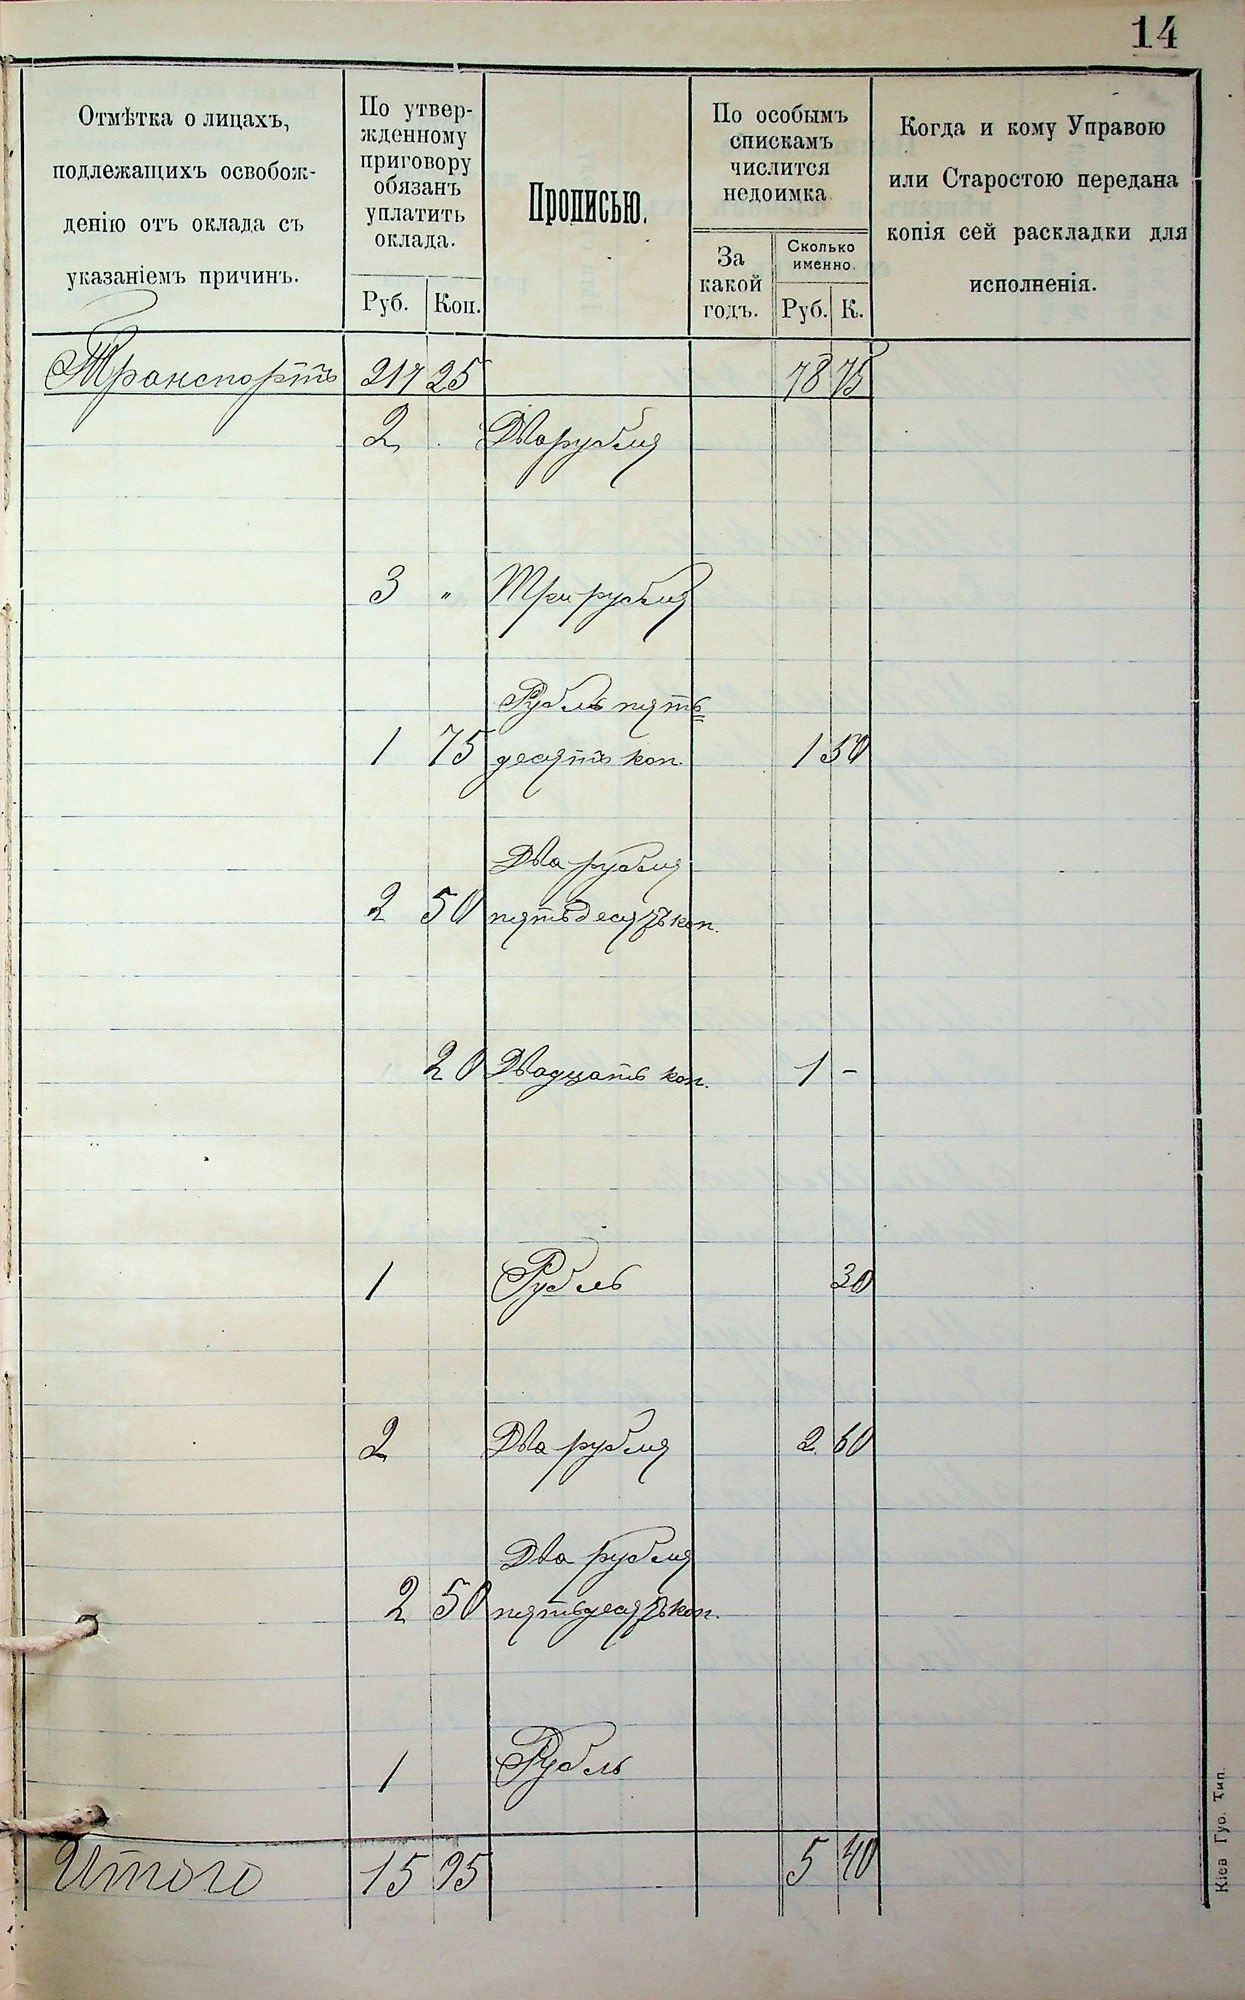 14
Отмѣтка о лицахъ,
подлежащихъ освобож-
денію отъ оклада съ
указаніемъ причинъ.
По утвер-
жденному
приговору
обязанъ
уплатить
оклада.
Руб. Коп.
Прописью.
По особымъ
спискамъ
числится
недоимка
За
какой
годъ.
Сколько
именно.
Руб. К.
Когда и кому Управою
или Старостою передана
копія сей раскладки для
исполненія.
Транспортъ 217 25 78 75
2 Два рубля
3 " Три рубля
Рубль пять
1 75 десятъ коп. 1 50
Два рубля
2 50 пятьдесятъ коп.
20 Двадцать коп. 1 -
1 Рубль 30
2 Два рубля 2. 60
Два рубля
2 50 пятьдесятъ коп.
1 Рубль
Итого 15 95 5 40
Кіев Губ. Тип.